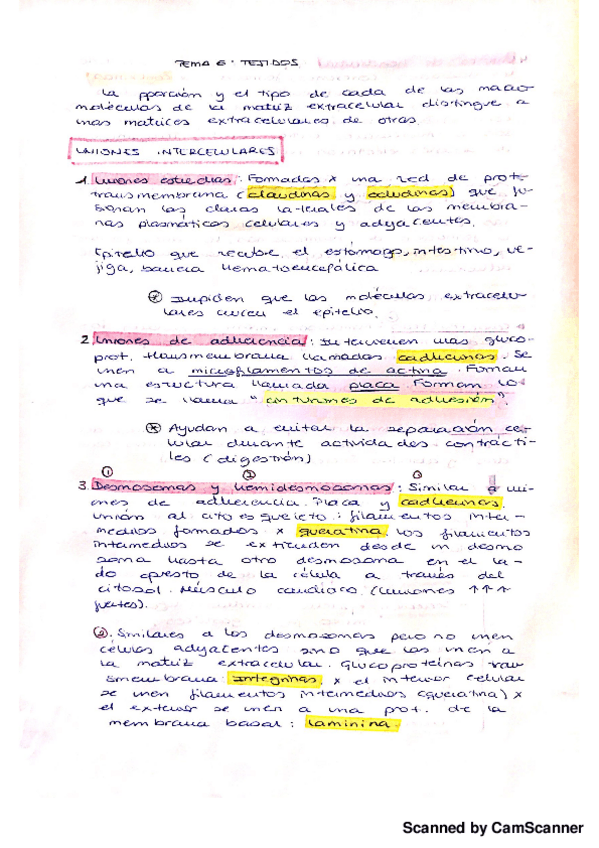 TEMA 6: TEJIDOS
La pporción y el tipo de cada de las macro
moléculas de la matriz extracelular distingue a
unas matrices extracelulares de otras.
UNIONES INTERCELULARES
1. Uniones estrechas: Formadas x una red de prot.
transmembrana (claudinas y ocludinas) que fu-
sionan las claras laterales de las membra-
nas plasmáticas celulares y adyacentes.
Epitelio que recubre el estómago, intestino, ve-
jiga, barrera hematoencefálica
* Impiden que las moléculas extracelu-
lares crucen el epitelio.
2. Uniones de adherencia: Intervienen unas gluco-
prot. transmembrana llamadas cadherinas. Se
unen a microfilamentos de actina. Forman
una estructura llamada placa. Forman lo
que se llama "cinturones de adhesión".
* Ayudan a evitar la separación ce-
lular durante actividades contrácti-
les (digestión)
① ② ①
3. Desmosomas y hemidesmosomas: Similar a uni-
ones de adherencia. Placa y cadherinas.
Unión al citoesqueleto: filamentos inter-
medios formados x queratina. Los filamentos
intermedios se extienden desde un desmo
soma hasta otro desmosoma en el la-
do opuesto de la célula a través del
citosol. Músculo cardíaco (Uniones ↑↑↑
fuertes).
②. Similares a los desmosomas pero no unen
células adyacentes sino que las unen a
la matriz extracelular. Glucoproteínas tran
smembrana: Integrinas, x el interior celular
se unen filamentos intermedios (queratina) x
el exterior se unen a una prot. de la
membrana basal: laminina.
Scanned by CamScanner